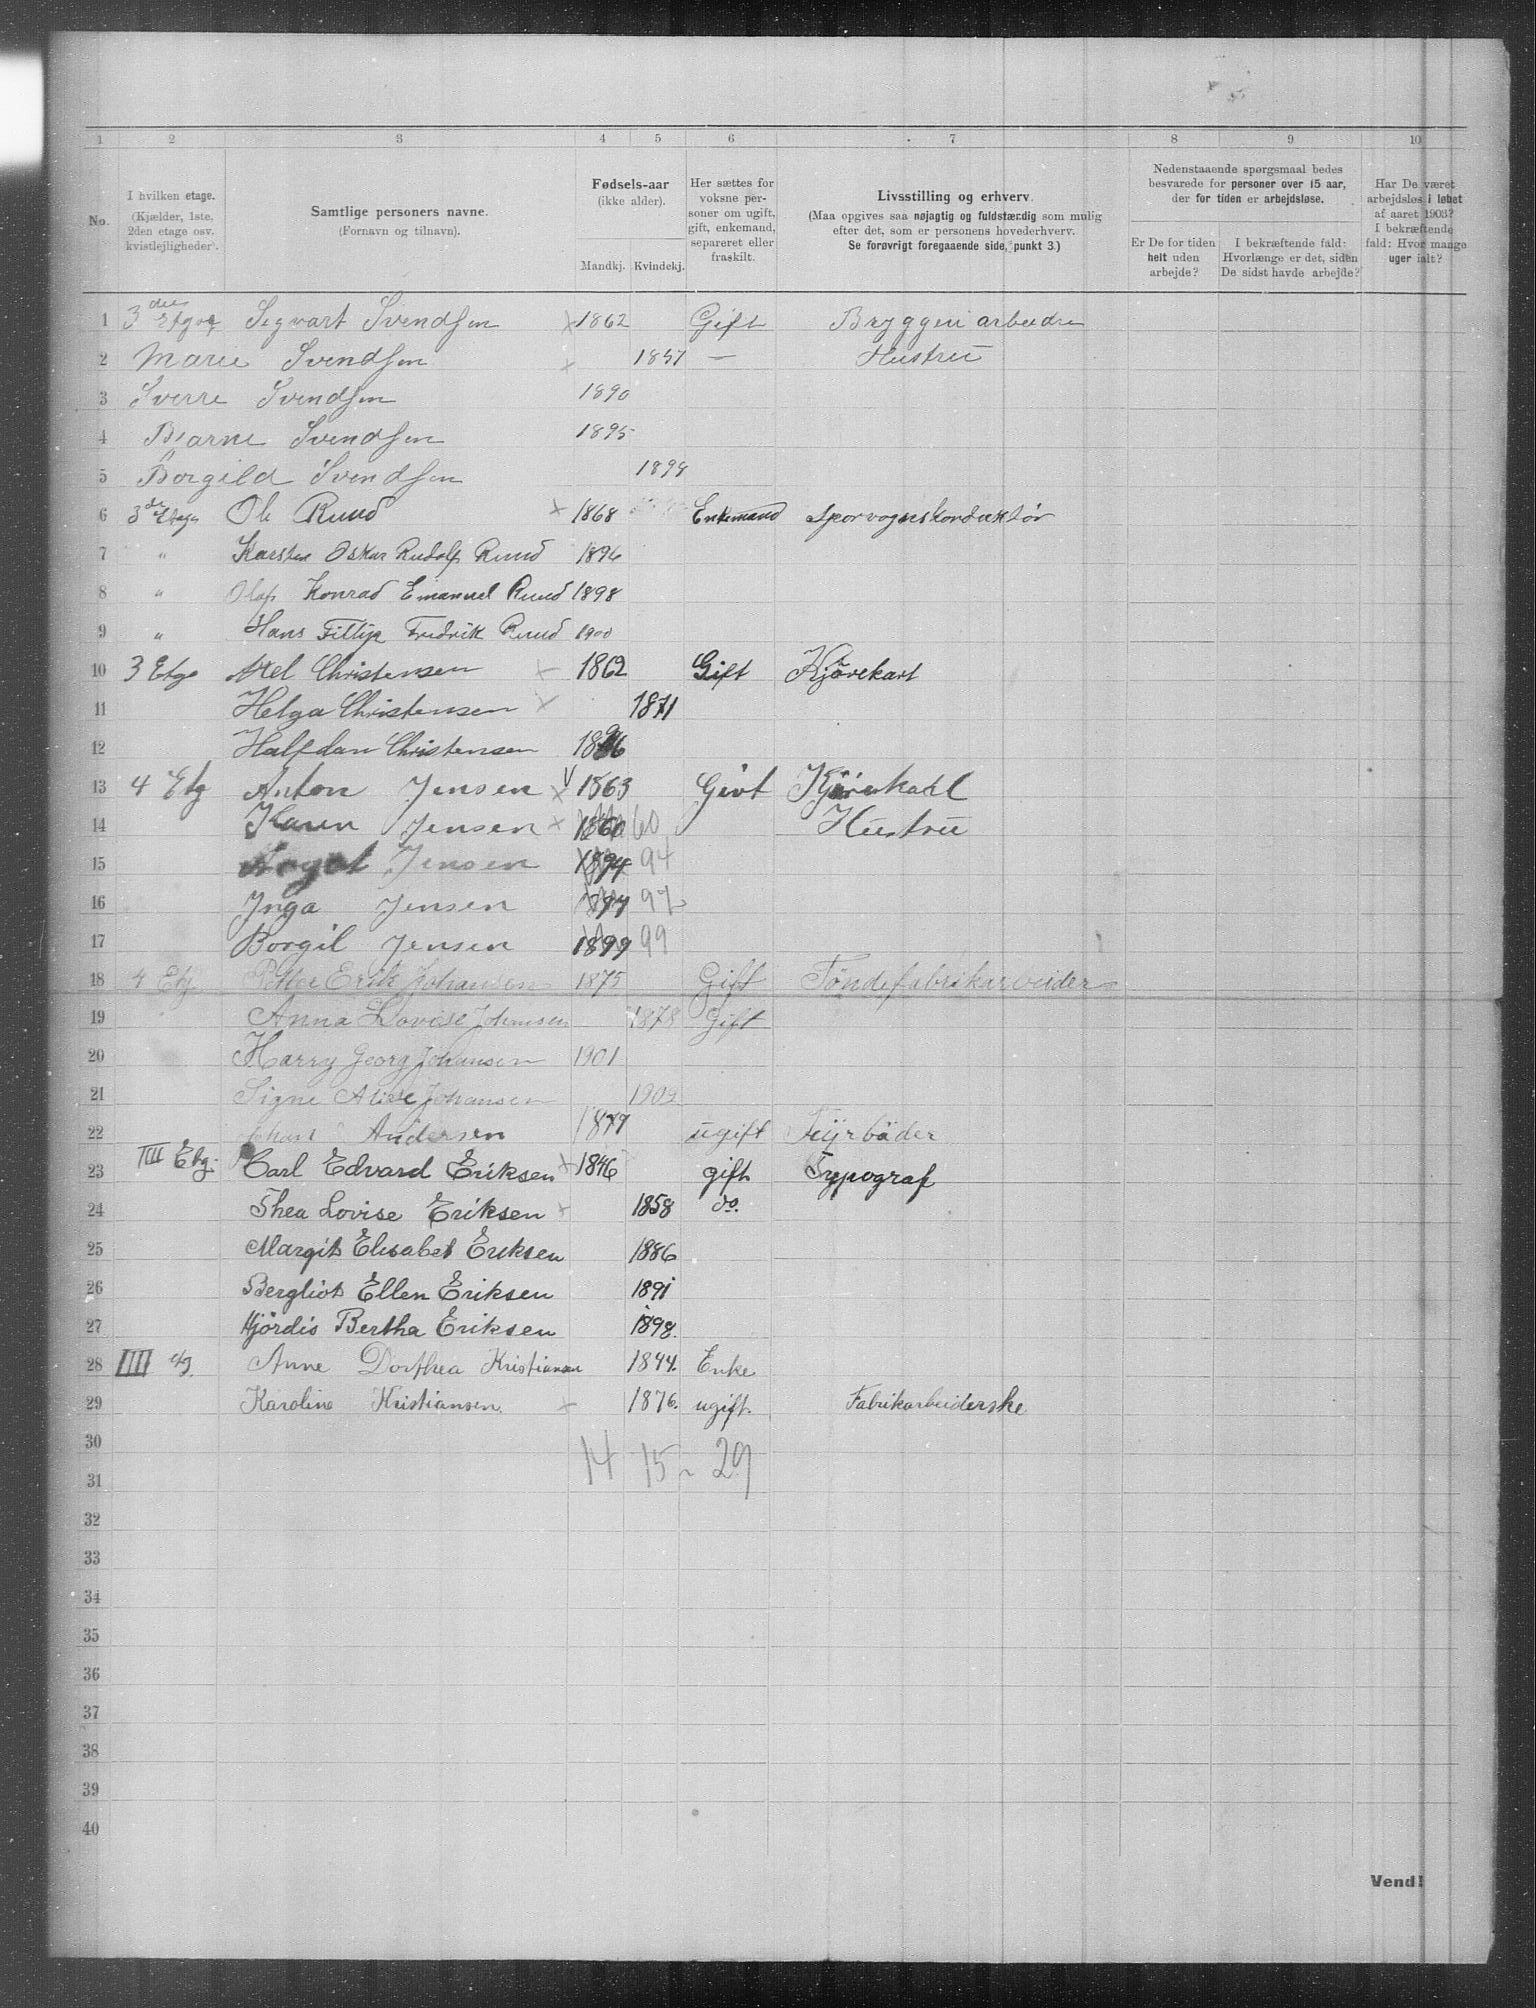 1 2 3 4 5 6 7 8 9 10
No.
I hvilken etage.
(Kjælder, 1ste.
2den etage osv.
kvistlejligheder).
Samtlige personers navne.
(Fornavn og tilnavn).
Fødsels-aar
(ikke alder).
Mandkj. Kvindekj.
Her sættes for
voksne per-
soner om ugift,
gift, enkemand,
separeret eller
fraskilt.
Livsstilling og erhverv.
(Maa opgives saa nøjagtig og fuldstændig som mulig
efter det, som er personens hovederhverv.
Se forøvrigt foregaaende side, punkt 3.)
Nedenstaaende spørgsmaal bedes
besvarede for personer over 15 aar,
der for tiden er arbejdsløse.
Er De for tiden
helt uden
arbejde?
I bekræftende fald:
Hvorlænge er det, siden
De sidst havde arbejde?
Har De været
arbejdsløs i løbet
af aaret 1903?
I bekræftende
fald: Hvor mange
uger ialt?
1 3 die Segvart Svendsen × 1862 Gift
2 Marie Svendsen × — Hustru
3 Sverre Svendsen 1890
4 Bjarne Svendsen 1895
5 Borgild Svendsen
6 3 Etage Ole Ruud × 1868 Enkemand Sporvognskonduktør
7 " Karsten Oskar Rudolf Ruud 1896
8 " Olaf Konrad Emanuel Ruud 1898
9 " Hans Fillip Fredrik Ruud 1900
10 3 Etge Christensen × 1862 Gift
11 Helga Christensen × 1871
12 Halfdan Christensen
13 4 Etg Anton Jensen × 1863 Givt
14 Karen Jensen × 1860 60 Hustru
15 Jensen 1894 94
16 Inga Jensen 1897 97
17 Borgil Jensen 1899 99
18 4 Etg Petter Erik Johansen 1875 Gift Töndefabrikarbeider
19 Anna Lovise Johansen 1878 Gift
20 Harry Georg Johansen 1901
21 Signe Johansen
22 Andersen 1879 ugift Fyrböder
23 IIII Etg. Carl Edvard Eriksen × 1846 gift Typograf
24 Thea Lovise Eriksen × 1858 do.
25 Margit Elisabet Eriksen 1886
26 Bergliot Ellen Eriksen 1891
27 Hjördis Bertha Eriksen 1898.
28 IIII etg. Anne Dorthea Kristiansen 1844. Enke
29 Karoline Kristiansen. × 1876. ugift. Fabrikarbeiderske
30
14 15 - 29
31
32
33
34
35
36
37
38
39
40
Vend!